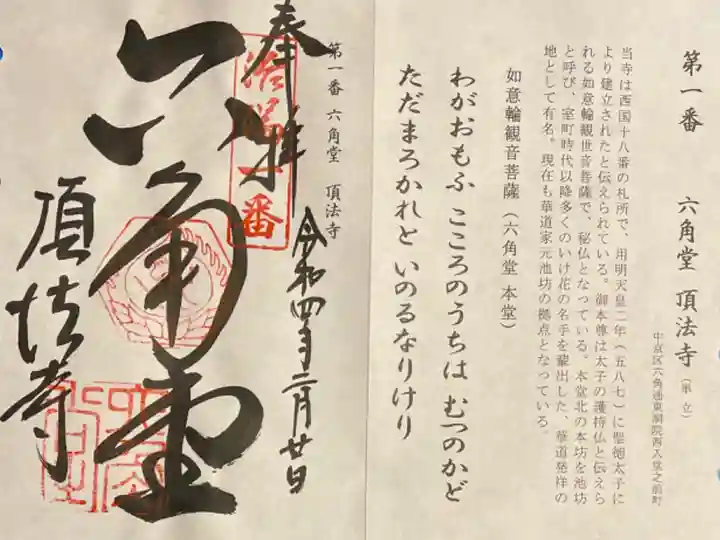 第一番 六角堂 頂法寺（単立）
中京区六角通東洞院西入堂之前町
当寺は西国十八番の札所で、用明天皇二年（五八七）に聖徳太子に
より建立されたと伝えられている。御本尊は太子の護持仏と伝えら
れる如意輪観世音菩薩で、秘仏となっている。本堂北の本坊を池坊
と呼び、室町時代以降多くのいけ花の名手を輩出した、華道発祥の
地として有名。現在も華道家元池坊の拠点となっている。
如意輪観音菩薩（六角堂 本堂）
わがおもふ こころのうちは むつのかど
ただまろかれと いのるなりけり
第一番 六角堂 頂法寺
奉拝
令和四年二月廿日
洛陽一番
六角堂
頂法寺